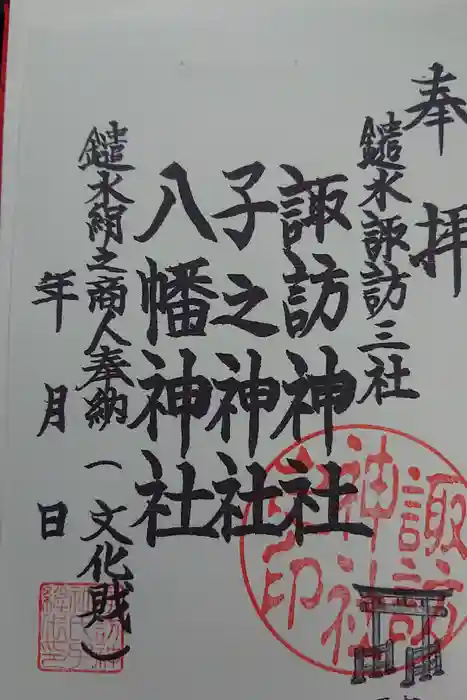 奉拝
鑓水諏訪三社
諏訪神社
子之神社
八幡神社
鑓水絹之商人奉納(文化賎)
年 月 日
諏訪
神社